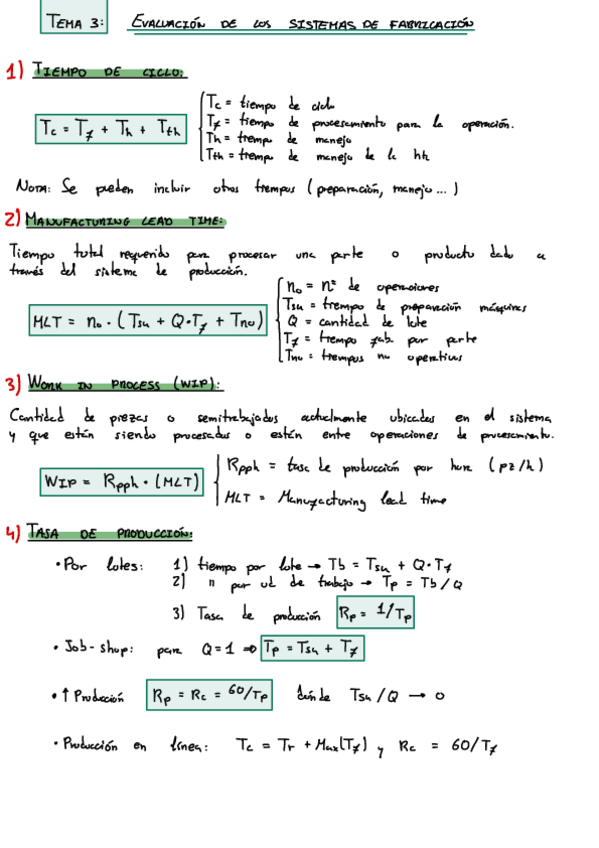 TEMA 3: EVALUACIÓN DE LOS SISTEMAS DE FABRICACIÓN
1) TIEMPO DE CICLO:
Tc = Tf + Th + Tth
Tc = tiempo de ciclo
Tf = tiempo de procesamiento para la operación.
Th = tiempo de manejo
Tth = tiempo de manejo de la hh
NOTA: Se pueden incluir otros tiempos (preparación, manejo...)
2) MANUFACTURING LEAD TIME:
Tiempo total requerido para procesar una parte o producto dado a
través del sistema de producción.
MLT = no · (Tsu + Q·Tf + Tno)
no = nº de operaciones
Tsu = tiempo de preparación máquinas
Q = cantidad de lote
Tf = tiempo fab. por parte
Tno = tiempos no operativos
3) WORK IN PROCESS (WIP):
Cantidad de piezas o semitrabajados actualmente ubicados en el sistema
y que están siendo procesados o están entre operaciones de procesamiento.
WIP = Rpph · (MLT)
Rpph = tasa de producción por hora (pz/h)
MLT = Manufacturing lead time
4) TASA DE PRODUCCIÓN:
• Por lotes: 1) tiempo por lote → Tb = Tsu + Q·Tf
2) " por ud de trabajo → Tp = Tb/Q
3) Tasa de producción Rp = 1/Tp
• Job-shop: para Q=1 ⇒ Tp = Tsu + Tf
• ↑ Producción Rp = Rc = 60/Tp donde Tsu/Q → 0
• Producción en línea: Tc = Tr + Max(Tf) y Rc = 60/Tf